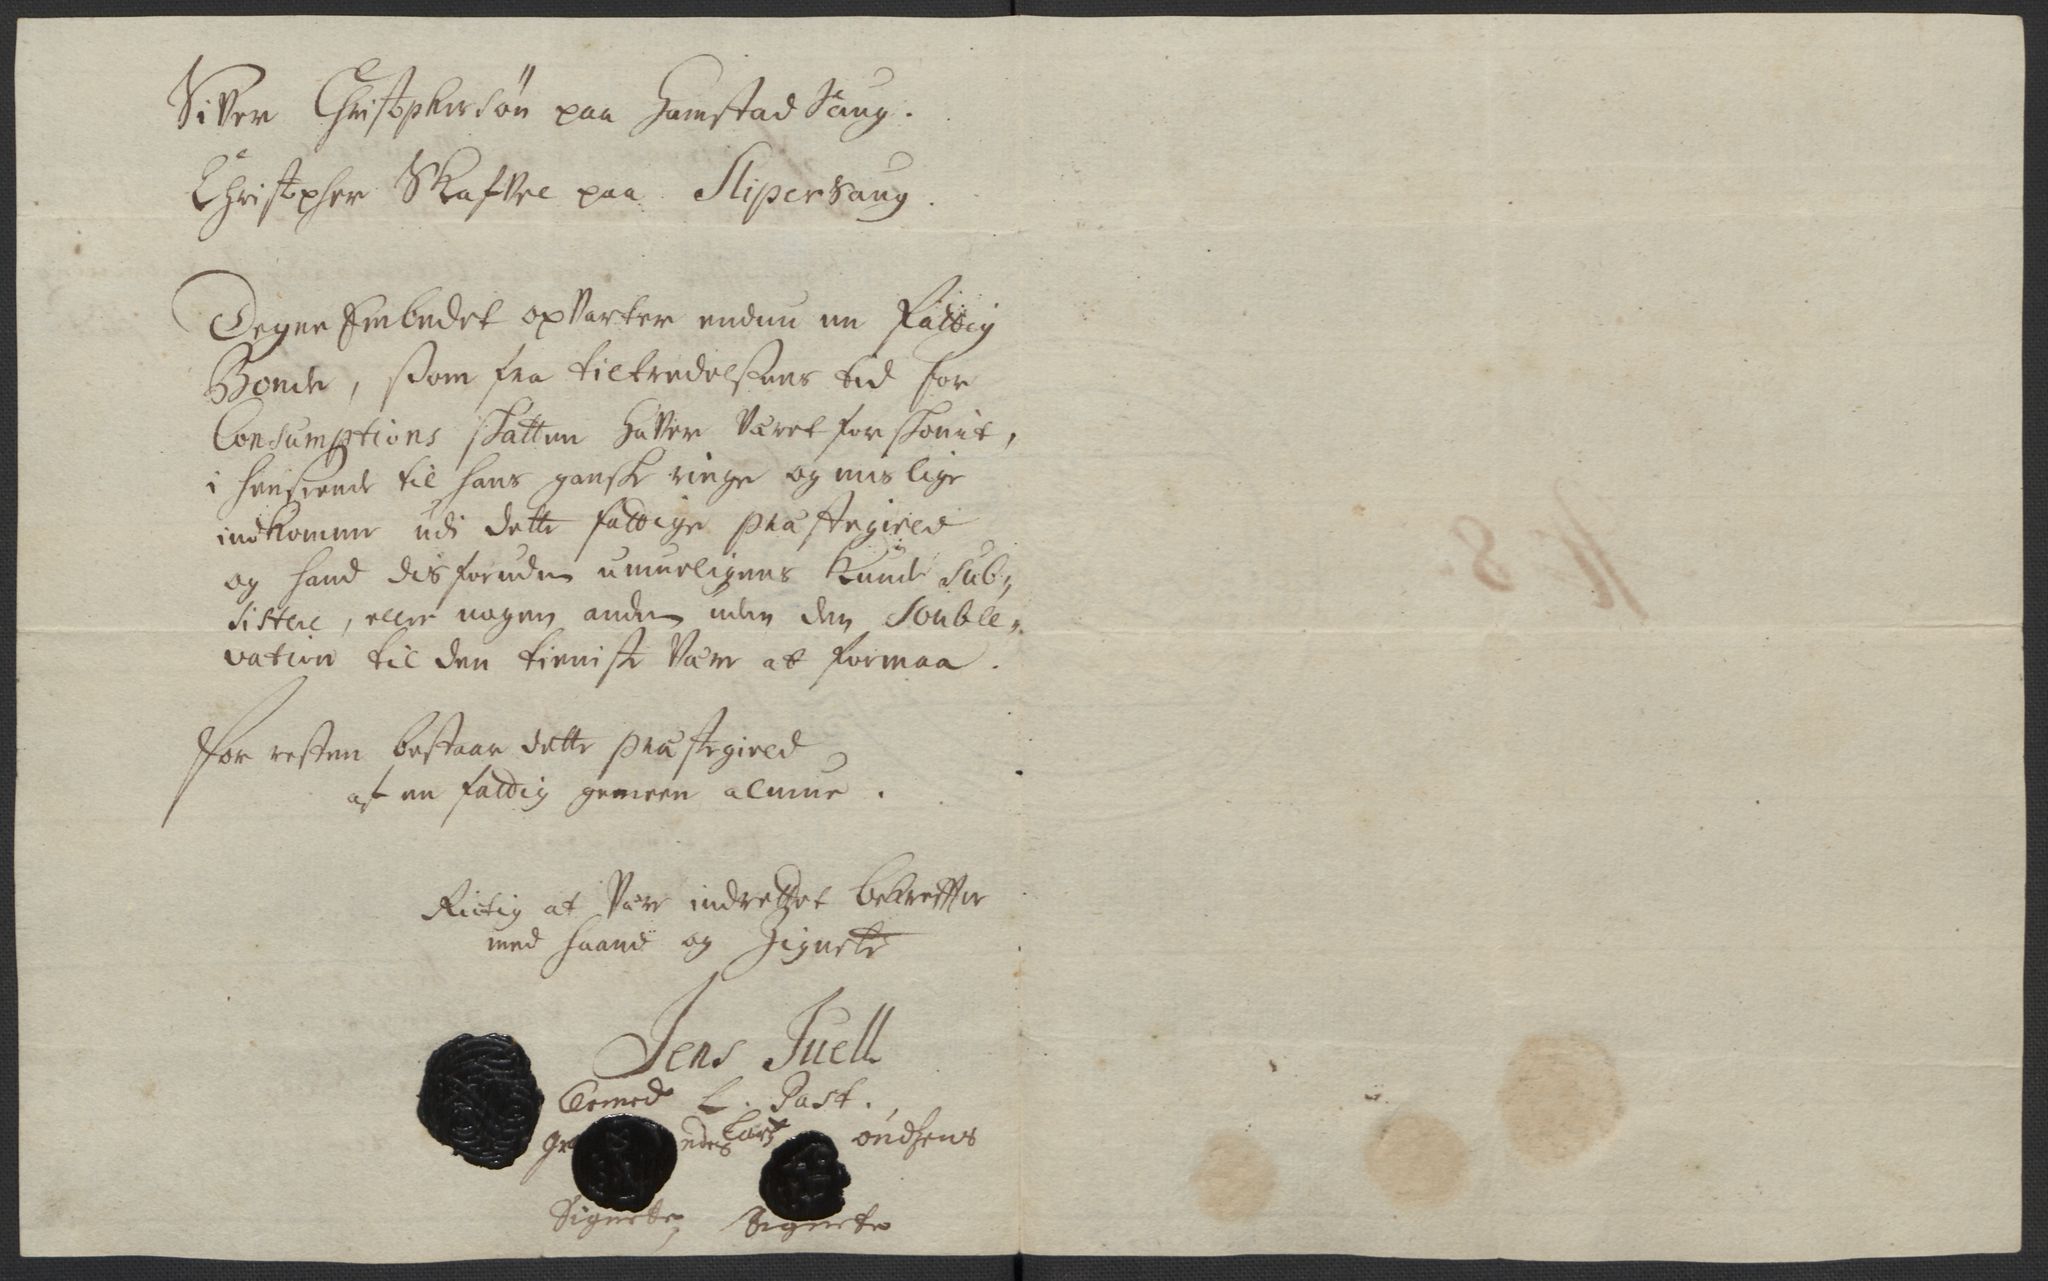 Siver Christophersön paa Hamstad Saug.
Christopher Skafvel paa Slipersaug.
Degne Embedet opvarter endnu en fattig
Bonde, som fra tiltredelsens tid for
Consumptions skatten haver været forskonit,
i henseende til hans ganske ringe og mislige
indkomme udi dette fattige præstegield
og hand disforuden umueligens kunde sub,,
sistere, eller nogen anden uden den Souble,,
vation til den tieniste være at formaa.
For resten bestaar dette præstegield
af en fattig gemeen almue.
Rictig at være indrettet bekreffter
med haand og Zignete
Jens Juell
L. Past.
Lars
Signete, Signete
N: 8.